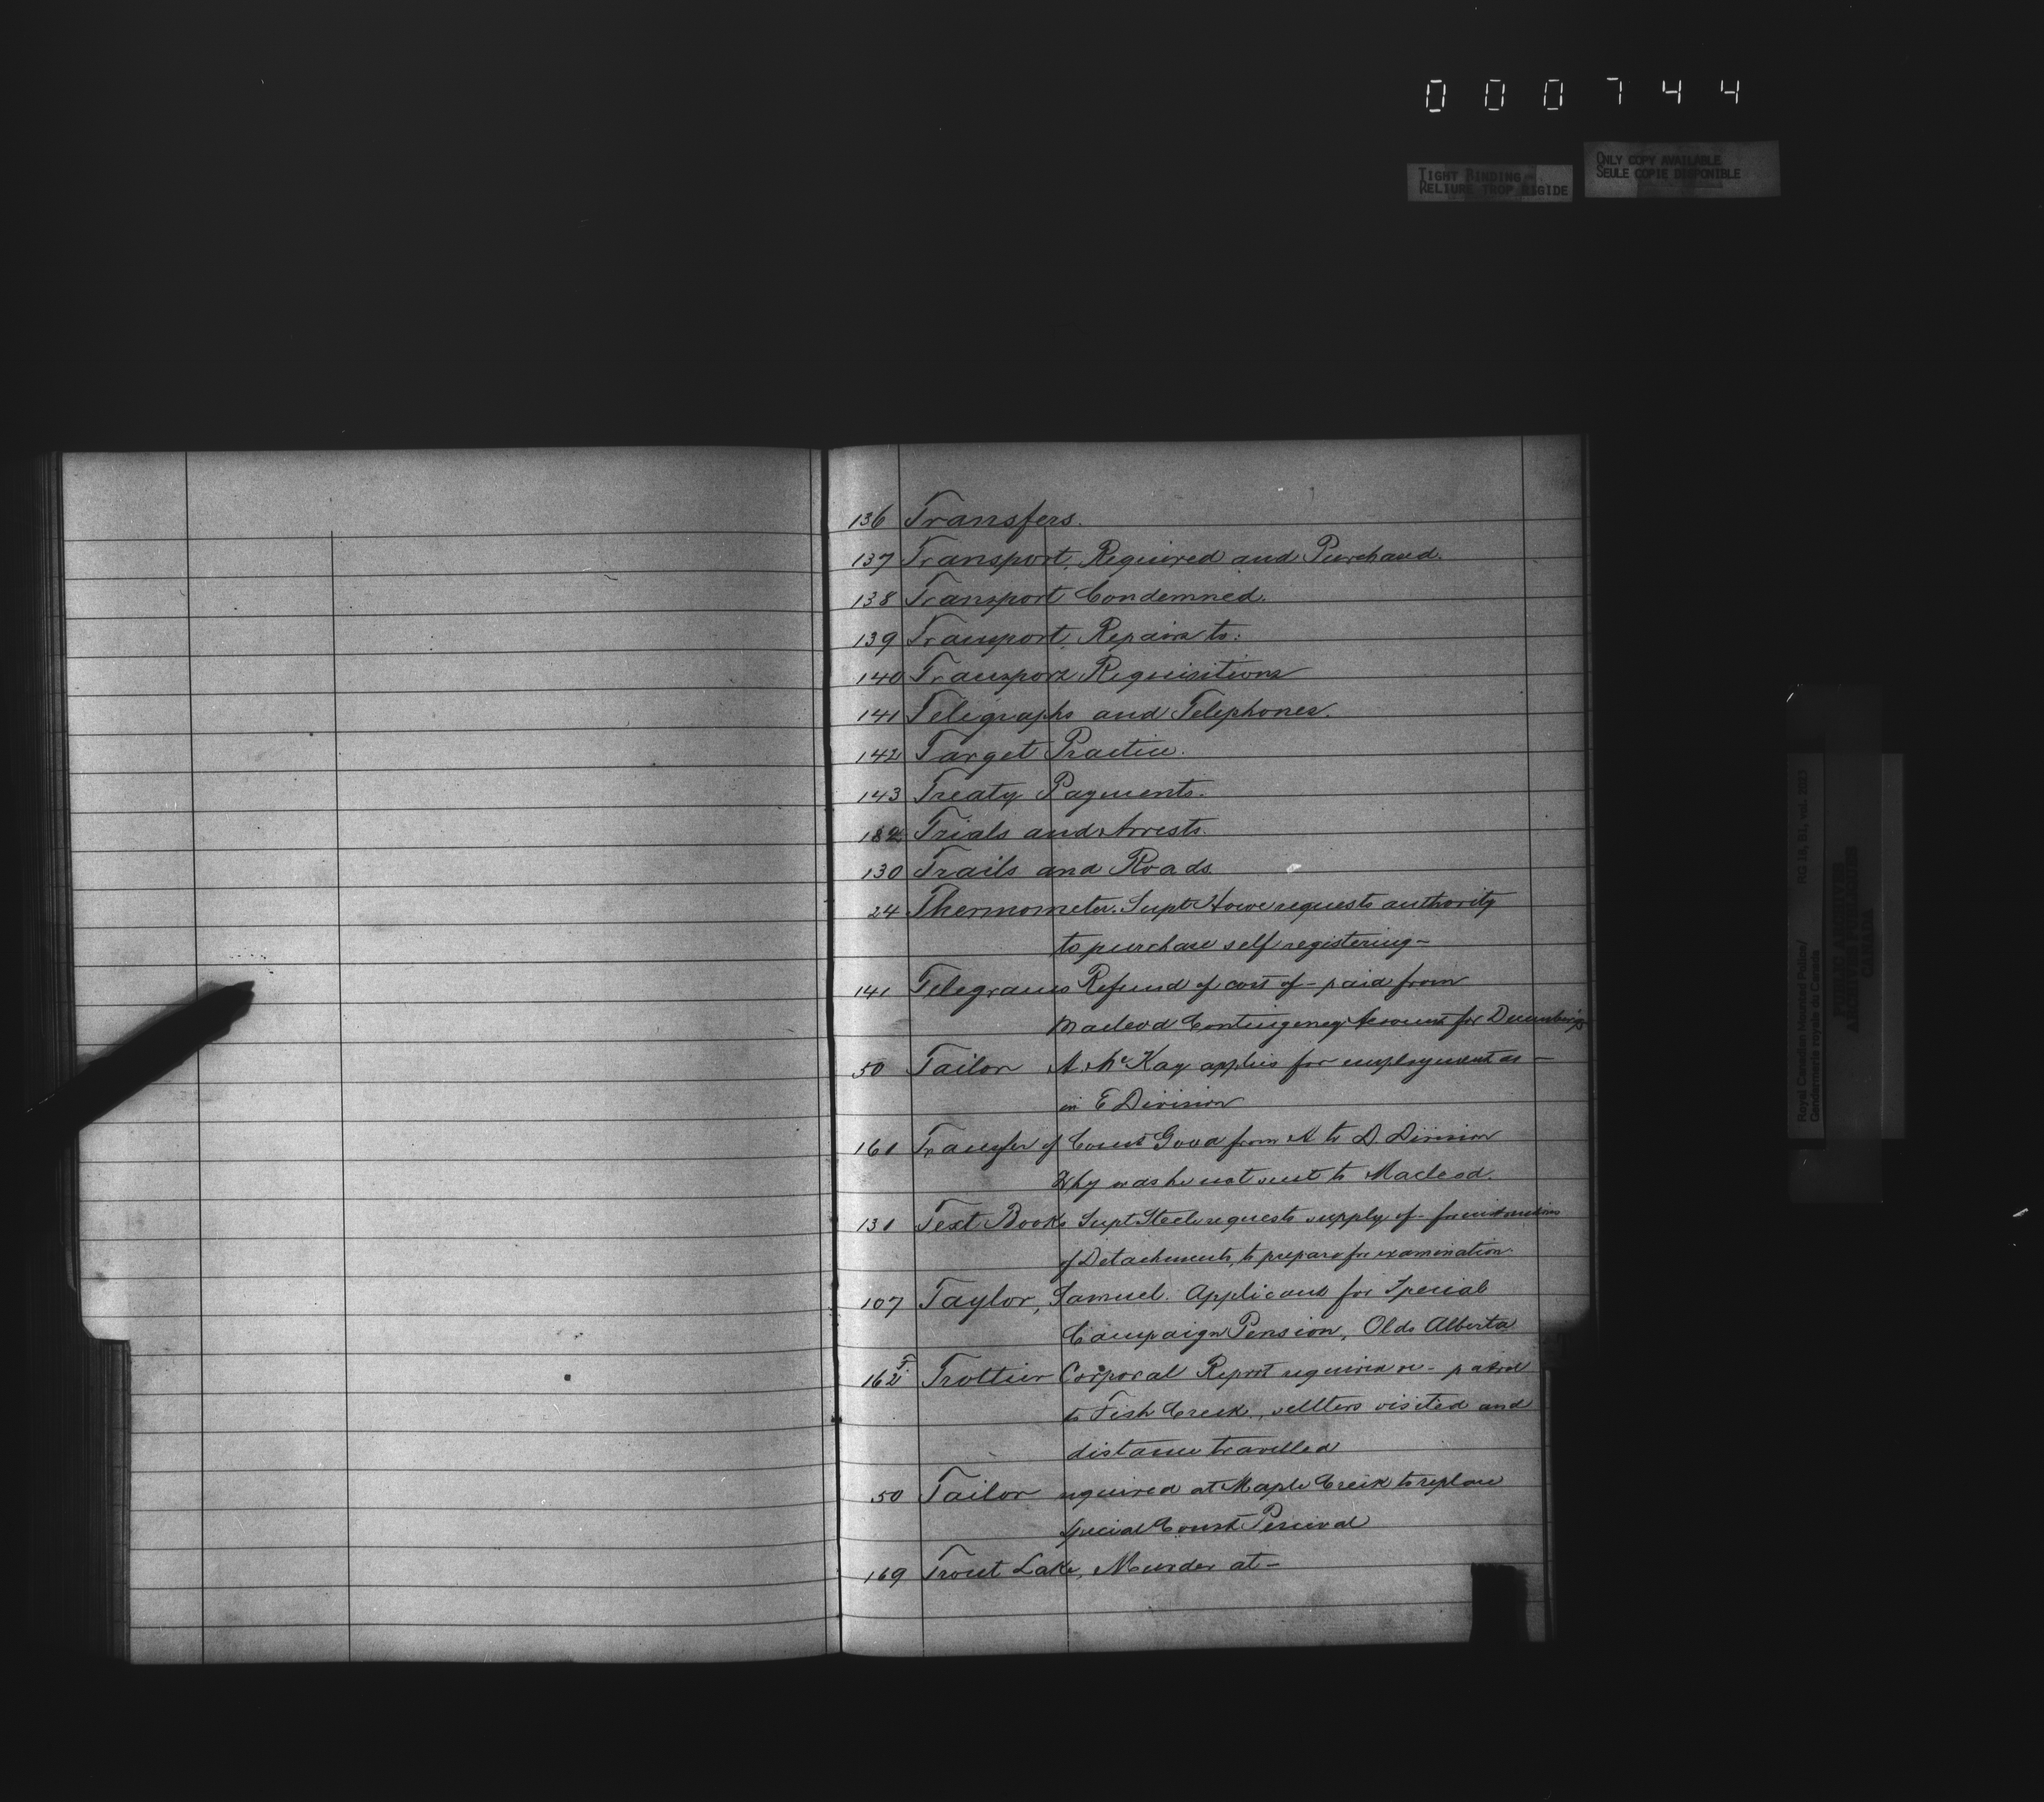 000744
TIGHT BINDING
RELIURE TROP RIGIDE
ONLY COPY AVAILABLE
SEULE COPIE DISPONIBLE
136 Transfers.
137 Transport, Required and Purchased.
138 Transport Condemned.
139 Transport, Repairs to:
140 Transport Requisitions
141 Telegraphs and Telephones.
142 Target Practice.
143 Treaty Payments.
182 Trials and Arrests.
130 Trails and Roads.
24 Thermometer. Supt Howe requests authority
to purchase self registering —
141 Telegrams Refund of cost of — paid from
Macleod Contingency Account for December
50 Tailor A. McKay applies for employment as —
in E Division
161 Transfer of Const Good from A to D Division
Why was he not sent to Macleod.
131 Text Books Supt Steele requests supply of —
of Detachments, to prepare for examination.
107 Taylor, Samuel. Applicant for Special
Campaign Pension, Olds Alberta
162 T Trottier Corporal Report required re — patrol
to Fish Creek, settlers visited and
distance travelled
50 Tailor required at Maple Creek to replace
Special Const Percival
169 Trout Lake, Murder at —
Royal Canadian Mounted Police/
Gendarmerie royale du Canada
RG 18, B1, vol.
PUBLIC ARCHIVES
ARCHIVES PUBLIQUES
CANADA